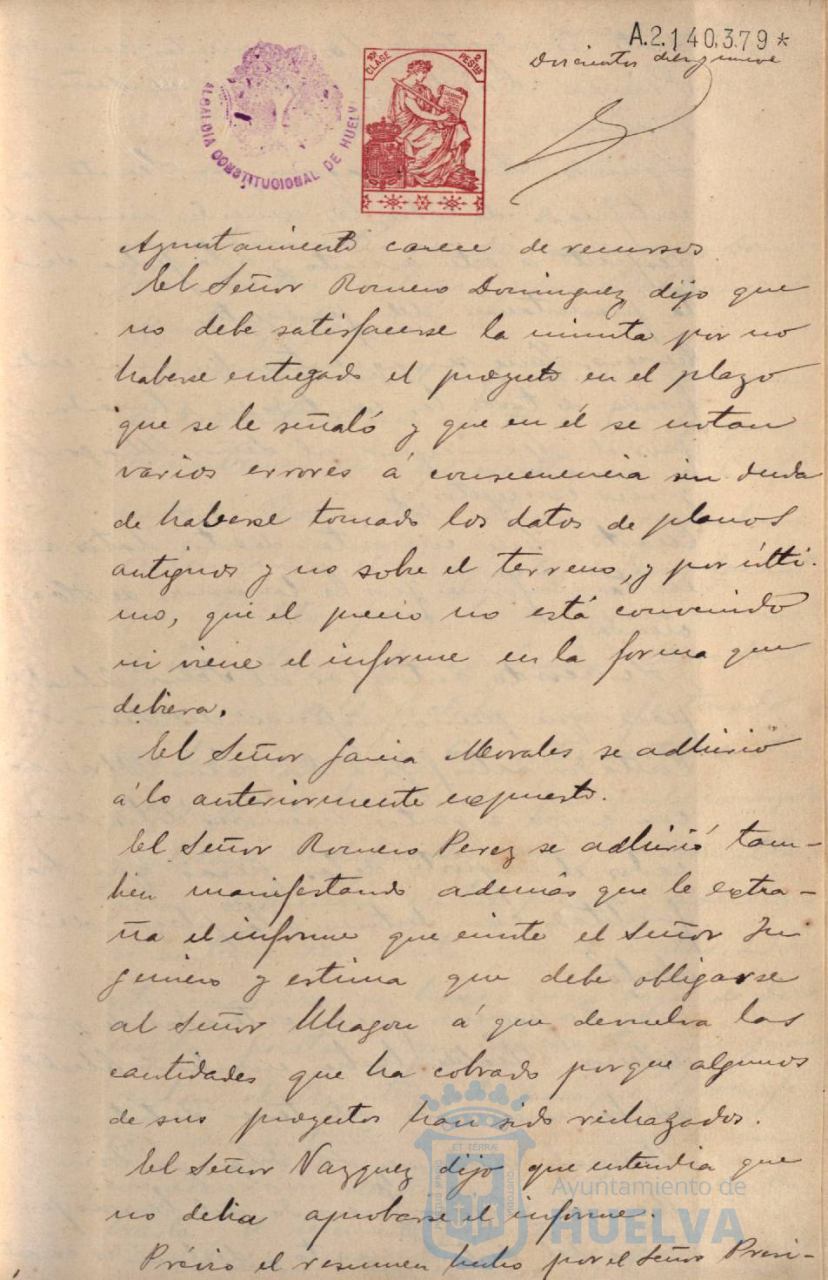 A.2.140.379*
Doscientos diez y nueve
10ª CLASE
2 PESETAS
ALCALDIA CONSTITUCIONAL DE HUELV
Ayuntamiento carece de recursos.
El Señor Romero Dominguez dijo que
no debe satisfacerse la minuta por no
haberse entregado el proyecto en el plazo
que se le señaló y que en él se notan
varios errores á consecuencia sin duda
de haberse tomado los datos de planos
antiguos y no sobre el terreno, y por últi-
mo, que el precio no está convenido
ni viene el informe en la forma que
debiera.
El Señor Garcia Morales se adhirió
á lo anteriormente expuesto.
El Señor Romero Perez se adhirió tam-
bien manifestando además que le extra-
ña el informe que emite el Señor In
geniero y estima que debe obligarse
al Señor Uhagon á que devuelva las
cantidades que ha cobrado porque algunos
de sus proyectos han sido rechazados.
El Señor Vazquez dijo que entendia que
no debia aprobarse el informe.
Prévio el resumen hecho por el Señor Presi-
Ayuntamiento de
HUELVA